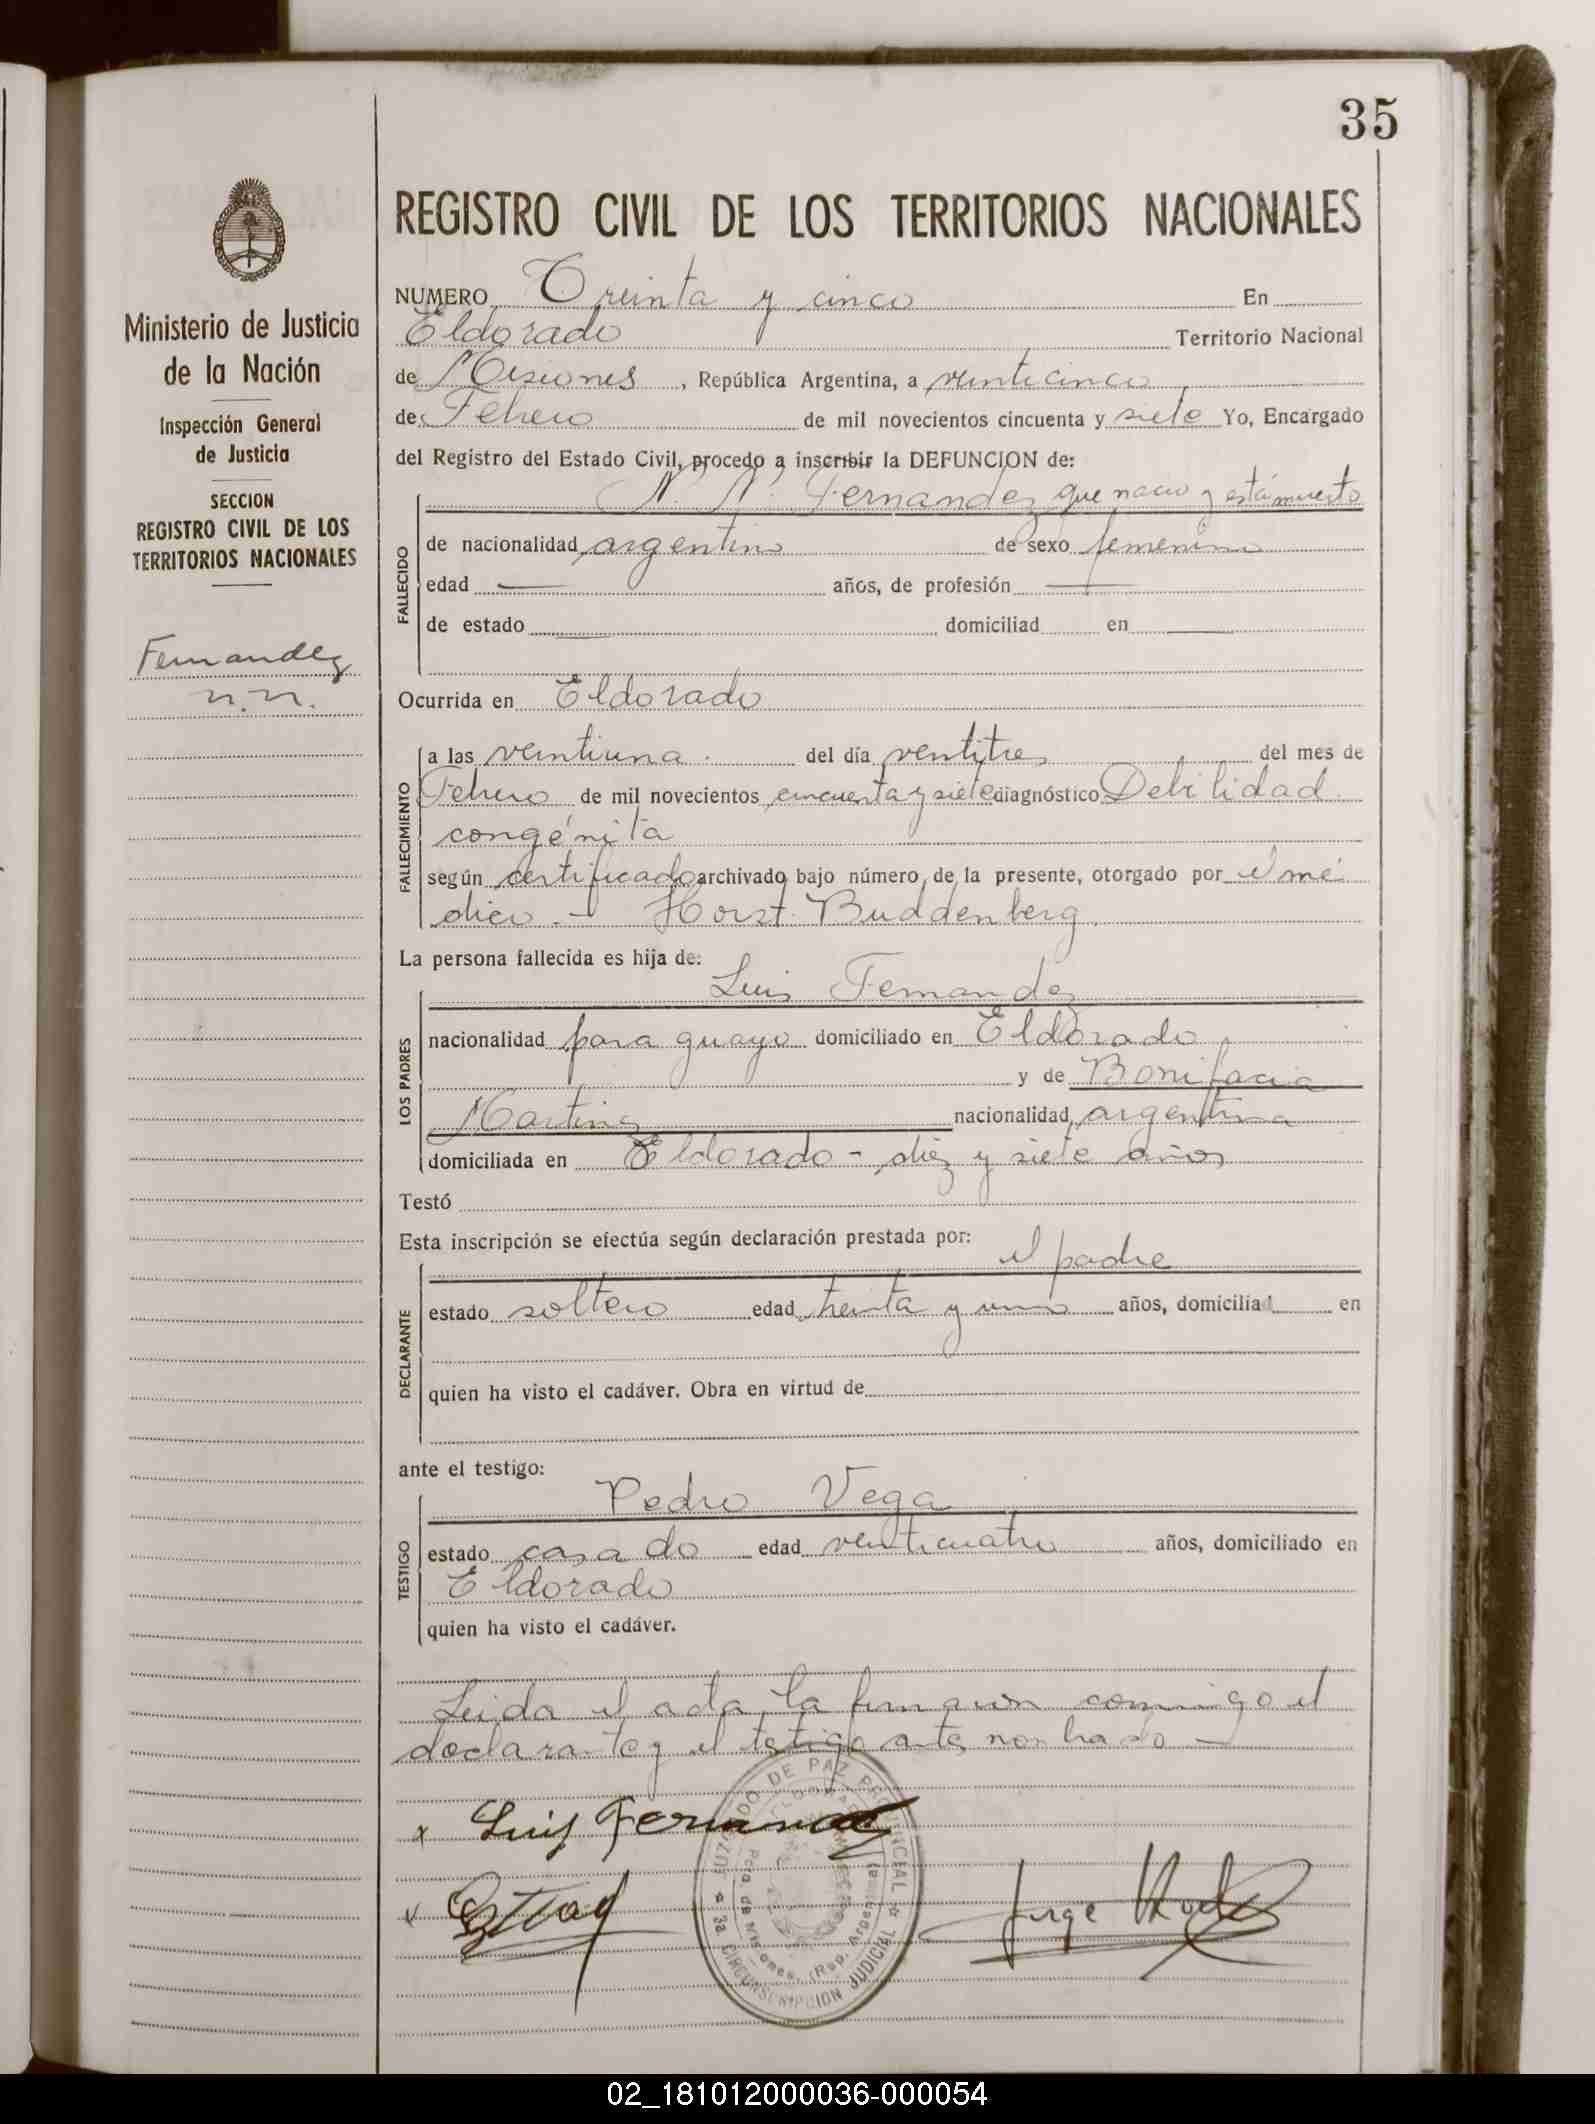 35
Ministerio de Justicia
de la Nación
Inspección General
de Justicia
SECCION
REGISTRO CIVIL DE LOS
TERRITORIOS NACIONALES
Fernandez
n.n.
REGISTRO CIVIL DE LOS TERRITORIOS NACIONALES
NUMERO Treinta y cinco En
Eldorado Territorio Nacional
de Misiones, República Argentina, a venticinco
de Febrero de mil novecientos cincuenta y siete Yo, Encargado
del Registro del Estado Civil, procedo a inscribir la DEFUNCION de:
N. N. Fernandez que nacio y está muerto
FALLECIDO
de nacionalidad argentino de sexo femenino
edad — años, de profesión —
de estado — domiciliad en —
Ocurrida en Eldorado
FALLECIMIENTO
a las ventiuna. del día ventitres del mes de
Febrero de mil novecientos cincuenta y siete diagnóstico Debilidad
congénita
según certificado archivado bajo número de la presente, otorgado por el mé
dico.- Horst Buddenberg.
La persona fallecida es hija de:
Luis Fernandez
LOS PADRES
nacionalidad paraguayo domiciliado en Eldorado
y de Bonifacia
Martinez nacionalidad argentina
domiciliada en Eldorado - diez y siete años
Testó
Esta inscripción se efectúa según declaración prestada por:
el padre
DECLARANTE
estado soltero edad treinta y uno años, domiciliad en
quien ha visto el cadáver. Obra en virtud de
ante el testigo:
Pedro Vega
TESTIGO
estado casado edad venticuatro años, domiciliado en
Eldorado
quien ha visto el cadáver.
Leida el acta la firmaron conmigo el
declarante y el testigo antes nombrado —
x Luis Fernandez
JUZGADO DE PAZ PROVINCIAL
3a CIRCUNSCRIPCION JUDICIAL
Pcia de Misiones, (Rep. Argentina)
x
Jorge
02_181012000036-000054